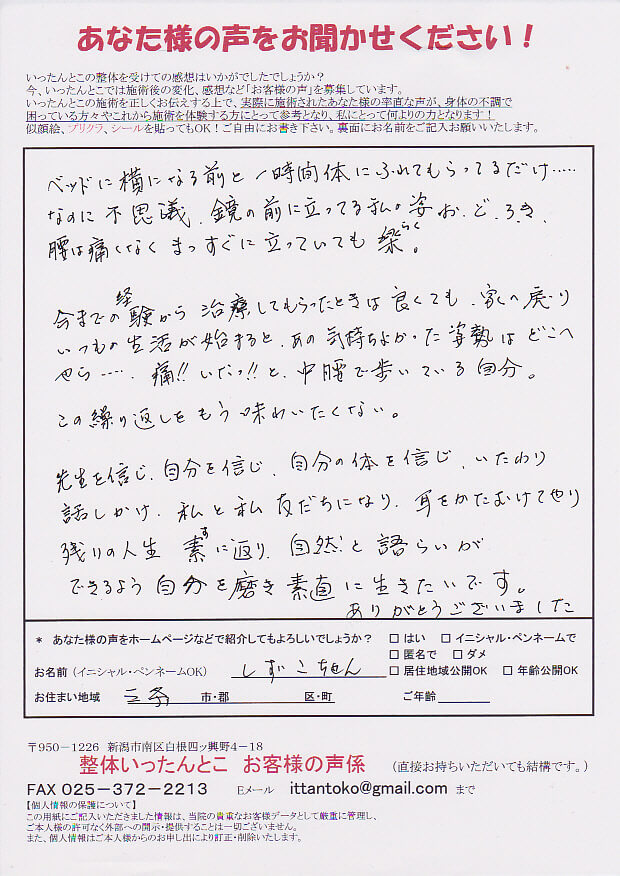 あなた様の声をお聞かせください！
いったんとこの整体を受けての感想はいかがでしたでしょうか？
今、いったんとこでは施術後の変化、感想など「お客様の声」を募集しています。
いったんとこの施術を正しくお伝えする上で、実際に施術されたあなた様の率直な声が、身体の不調で
困っている方々やこれから施術を体験する方にとって参考となり、私にとって何よりの力となります！
似顔絵、プリクラ、シールを貼ってもOK！ご自由にお書き下さい。裏面にお名前をご記入お願いいたします。
ベッドに横になる前と一時間体にふれてもらってるだけ……
なのに不思議、鏡の前に立ってる私の姿お、ど、ろき、
腰は痛くなくまっすぐに立っていても楽。
らく
今までの経験から治療してもらったときは良くても、家へ戻り
いつもの生活が始まると、あの気持ちよかった姿勢はどこへ
やら……、痛!!いだっ!!と、中腰で歩いている自分。
この繰り返しをもう味わいたくない。
先生を信じ、自分を信じ、自分の体を信じ、いたわり
話しかけ、私と私友だちになり、耳をかたむけてやり
残りの人生 素に返り、自然と語らいが
す
できるよう自分を磨き素直に生きたいです。
ありがとうございました
* あなた様の声をホームページなどで紹介してもよろしいでしょうか？ □ はい □ イニシャル・ペンネームで
□ 匿名で □ ダメ
お名前（イニシャル・ペンネームOK） しずこちゃん □ 居住地域公開OK □ 年齢公開OK
お住まい地域 三条 市・郡 区・町 ご年齢
〒950－1226 新潟市南区白根四ッ興野4－18
整体いったんとこ お客様の声係 （直接お持ちいただいても結構です。）
FAX 025－372－2213 Eメール ittantoko@gmail.com まで
【個人情報の保護について】
この用紙にご記入いただきました情報は、当院の貴重なお客様データとして厳重に管理し、
ご本人様の許可なく外部への開示・提供することは一切ございません。
また、個人情報はご本人様からのお申し出により訂正・削除いたします。